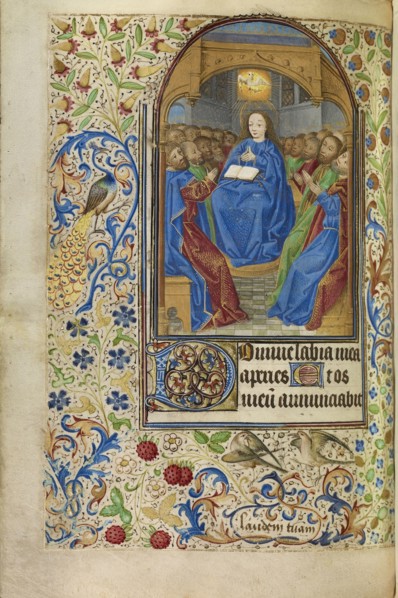 Domine labia mea
aperies Et os
meū annunciabit
laudem tuam